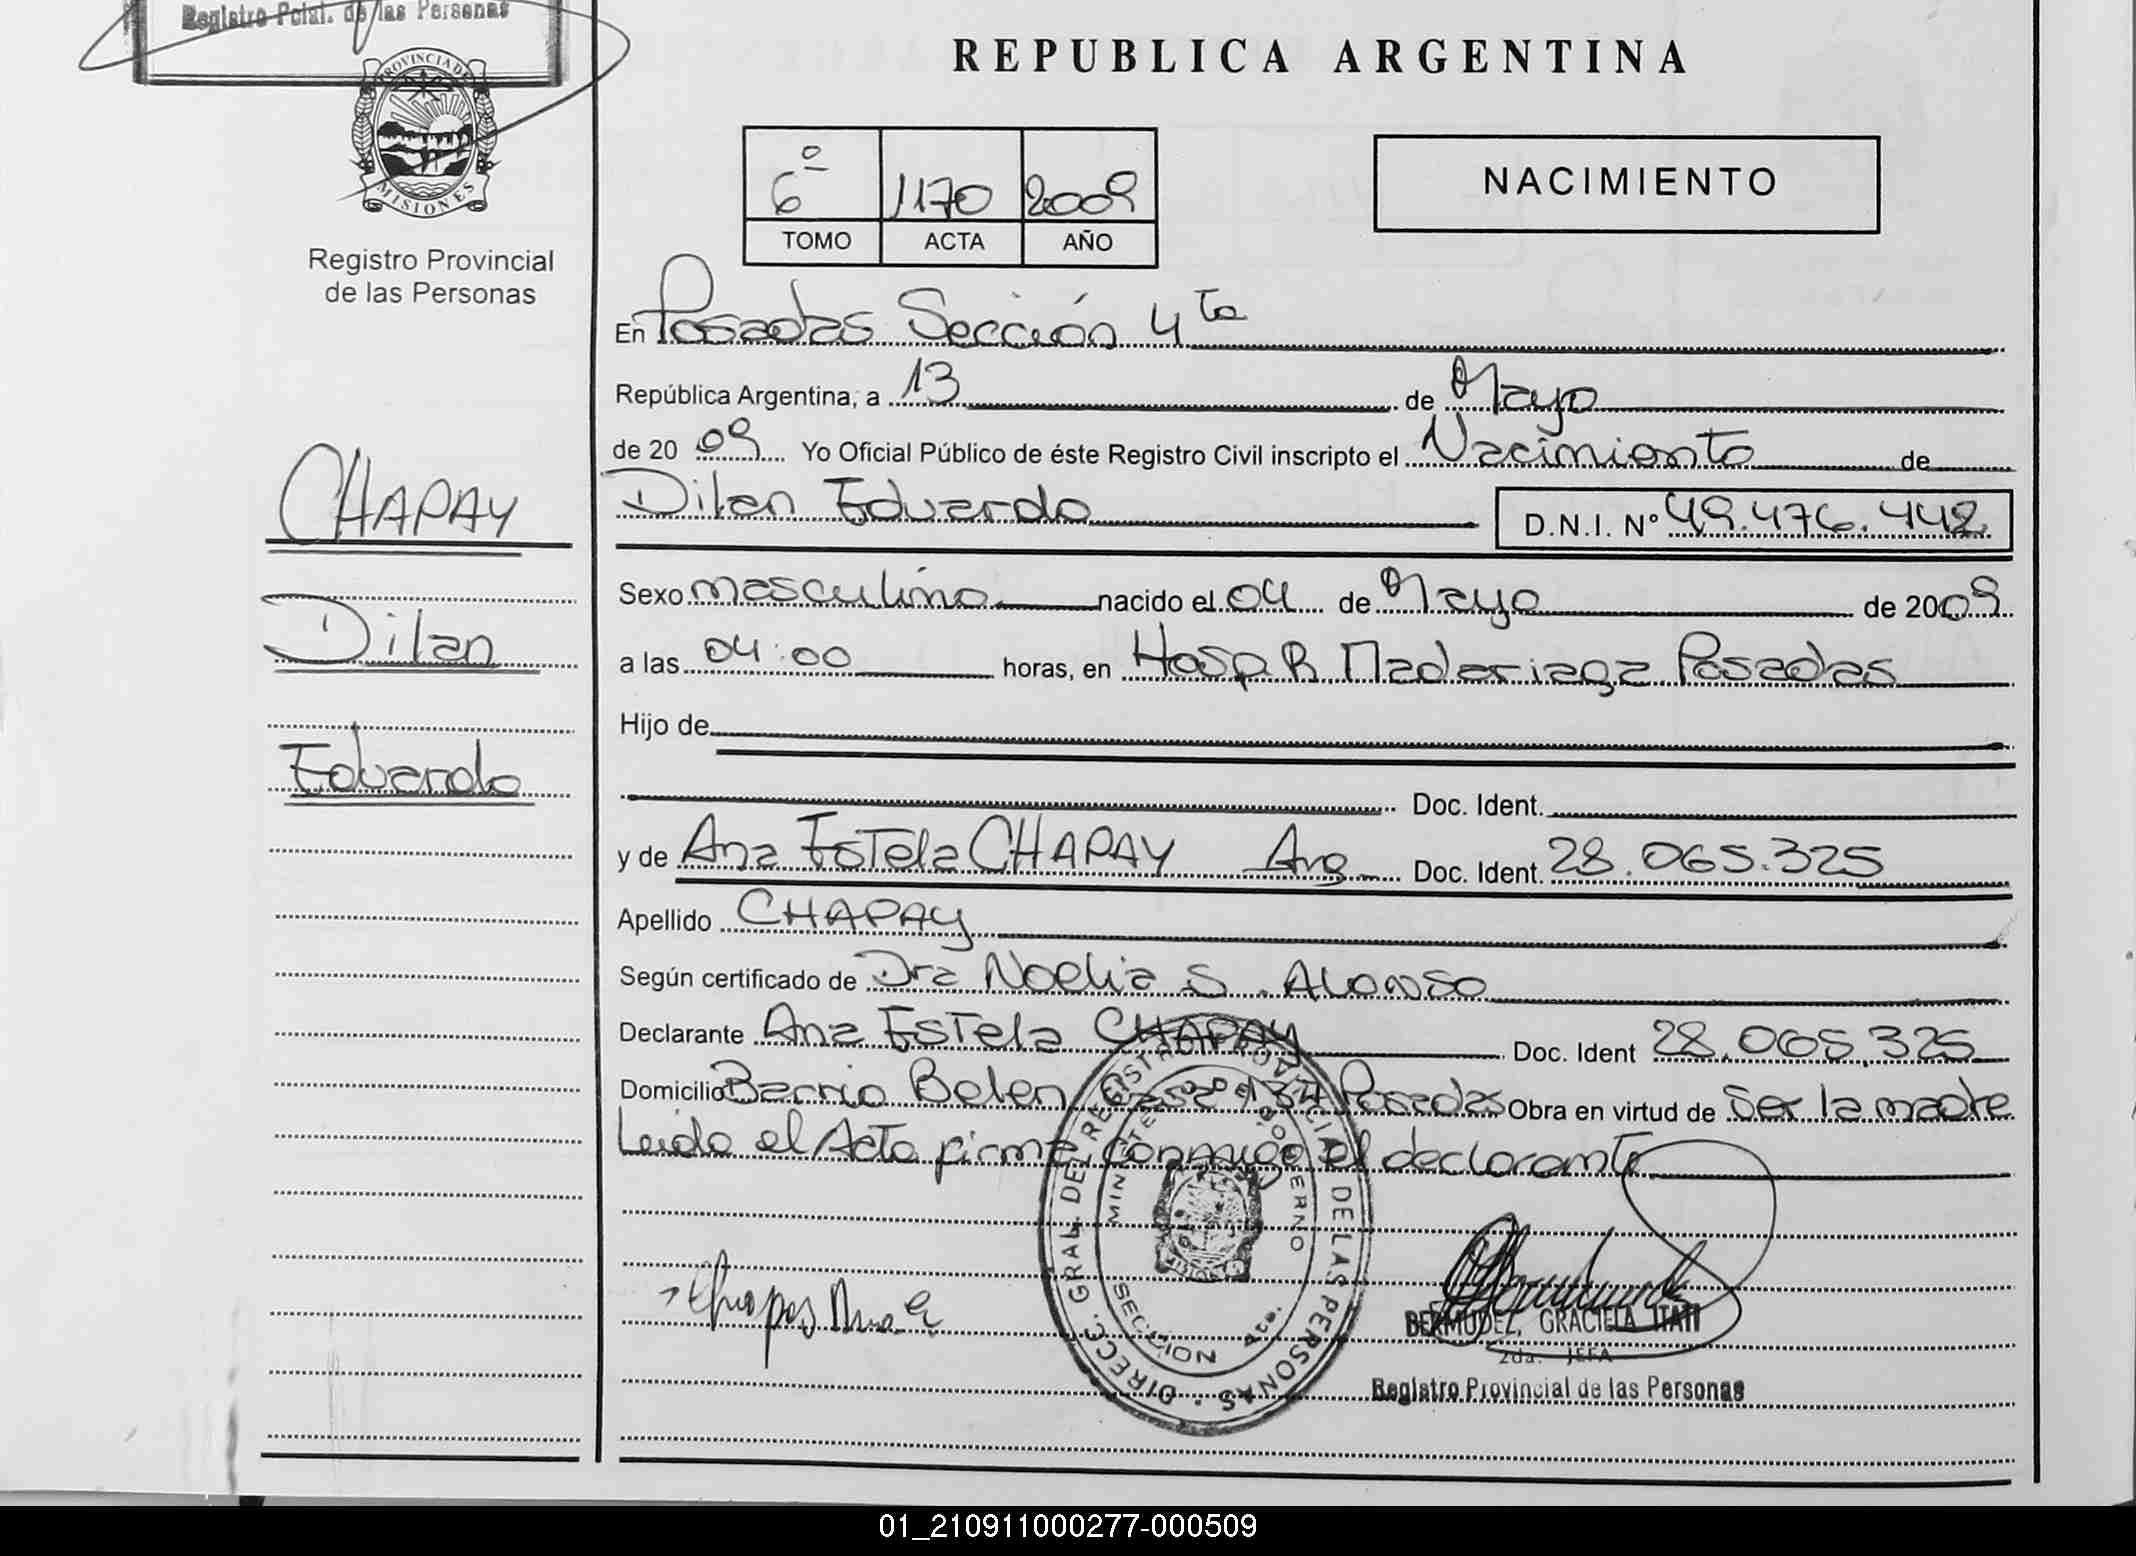 Registro Pcial. de las Personas
PROVINCIA DE
MISIONES
Registro Provincial
de las Personas
CHAPAY
Dilan
Eduardo
REPUBLICA ARGENTINA
6º 1170 2009
TOMO ACTA AÑO
NACIMIENTO
En Posadas Sección 4ta
República Argentina, a 13 de Mayo
de 2009 Yo Oficial Público de éste Registro Civil inscripto el Nacimiento de
Dilan Eduardo D.N.I. Nº 49.476.442
Sexo masculino nacido el 04 de Mayo de 2009
a las 04:00 horas, en Hosp. R. Madariaga Posadas
Hijo de
Doc. Ident.
y de Ana Estela CHAPAY Arg Doc. Ident. 28.065.325
Apellido CHAPAY
Según certificado de Dra Noelia S. Alonso
Declarante Ana Estela CHAPAY Doc. Ident 28.065.325
Domicilio Barrio Belen Casa Posadas Obra en virtud de Ser la madre
Leido el Acta firma conmigo el declarante
DIRECC. GRAL. DEL REGISTRO PROVINCIAL DE LAS PERSONAS
MINISTERIO DE GOBIERNO
SECCION 4ta.
MISIONES
Chapay Ana E
BERMUDEZ, GRACIELA ITATI
2da. JEFA
Registro Provincial de las Personas
01_210911000277-000509